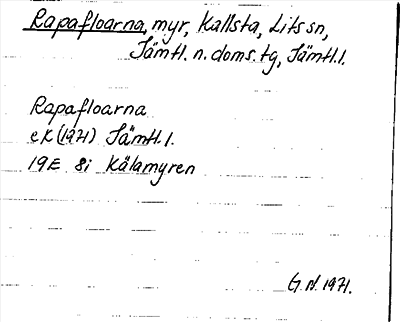 Rapafloarna, myr, Kallsta, Lits sn,
Jämtl. n. doms. tg, Jämtl. l.
Rapafloarna
eK (1971) Jämtl. l.
19E 8i Kälamyren
G.N. 1971.